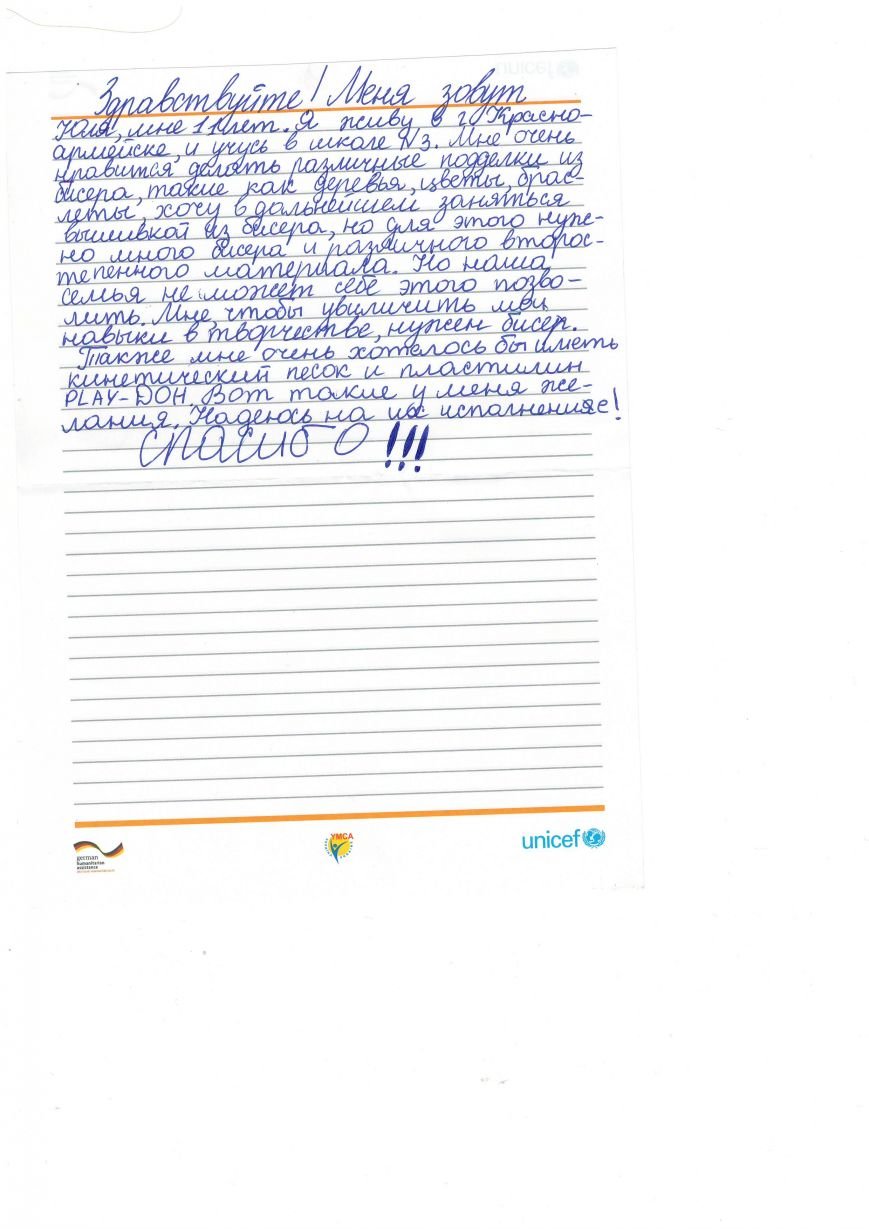 unicef
Здравствуйте! Меня зовут
Юля, мне 11 лет. Я живу в г. Красно-
армейске, и учусь в школе №3. Мне очень
нравится делать различные подделки из
бисера, такие как деревья, цветы, брас-
леты, хочу в дальнейшем заняться
вышивкой из бисера, но для этого нуж-
но много бисера и различного второс-
тепенного материала. Но наша
семья не может себе этого позво-
лить. Мне, чтобы увиличить мои
навыки в творчестве, нужен бисер.
Также мне очень хотелось бы иметь
кинетический песок и пластилин
PLAY-DOH. Вот такие у меня же-
лания. Надеюсь на их исполнение!
СПАСИБО!!!
german
humanitarian
assistance
YMCA
unicef